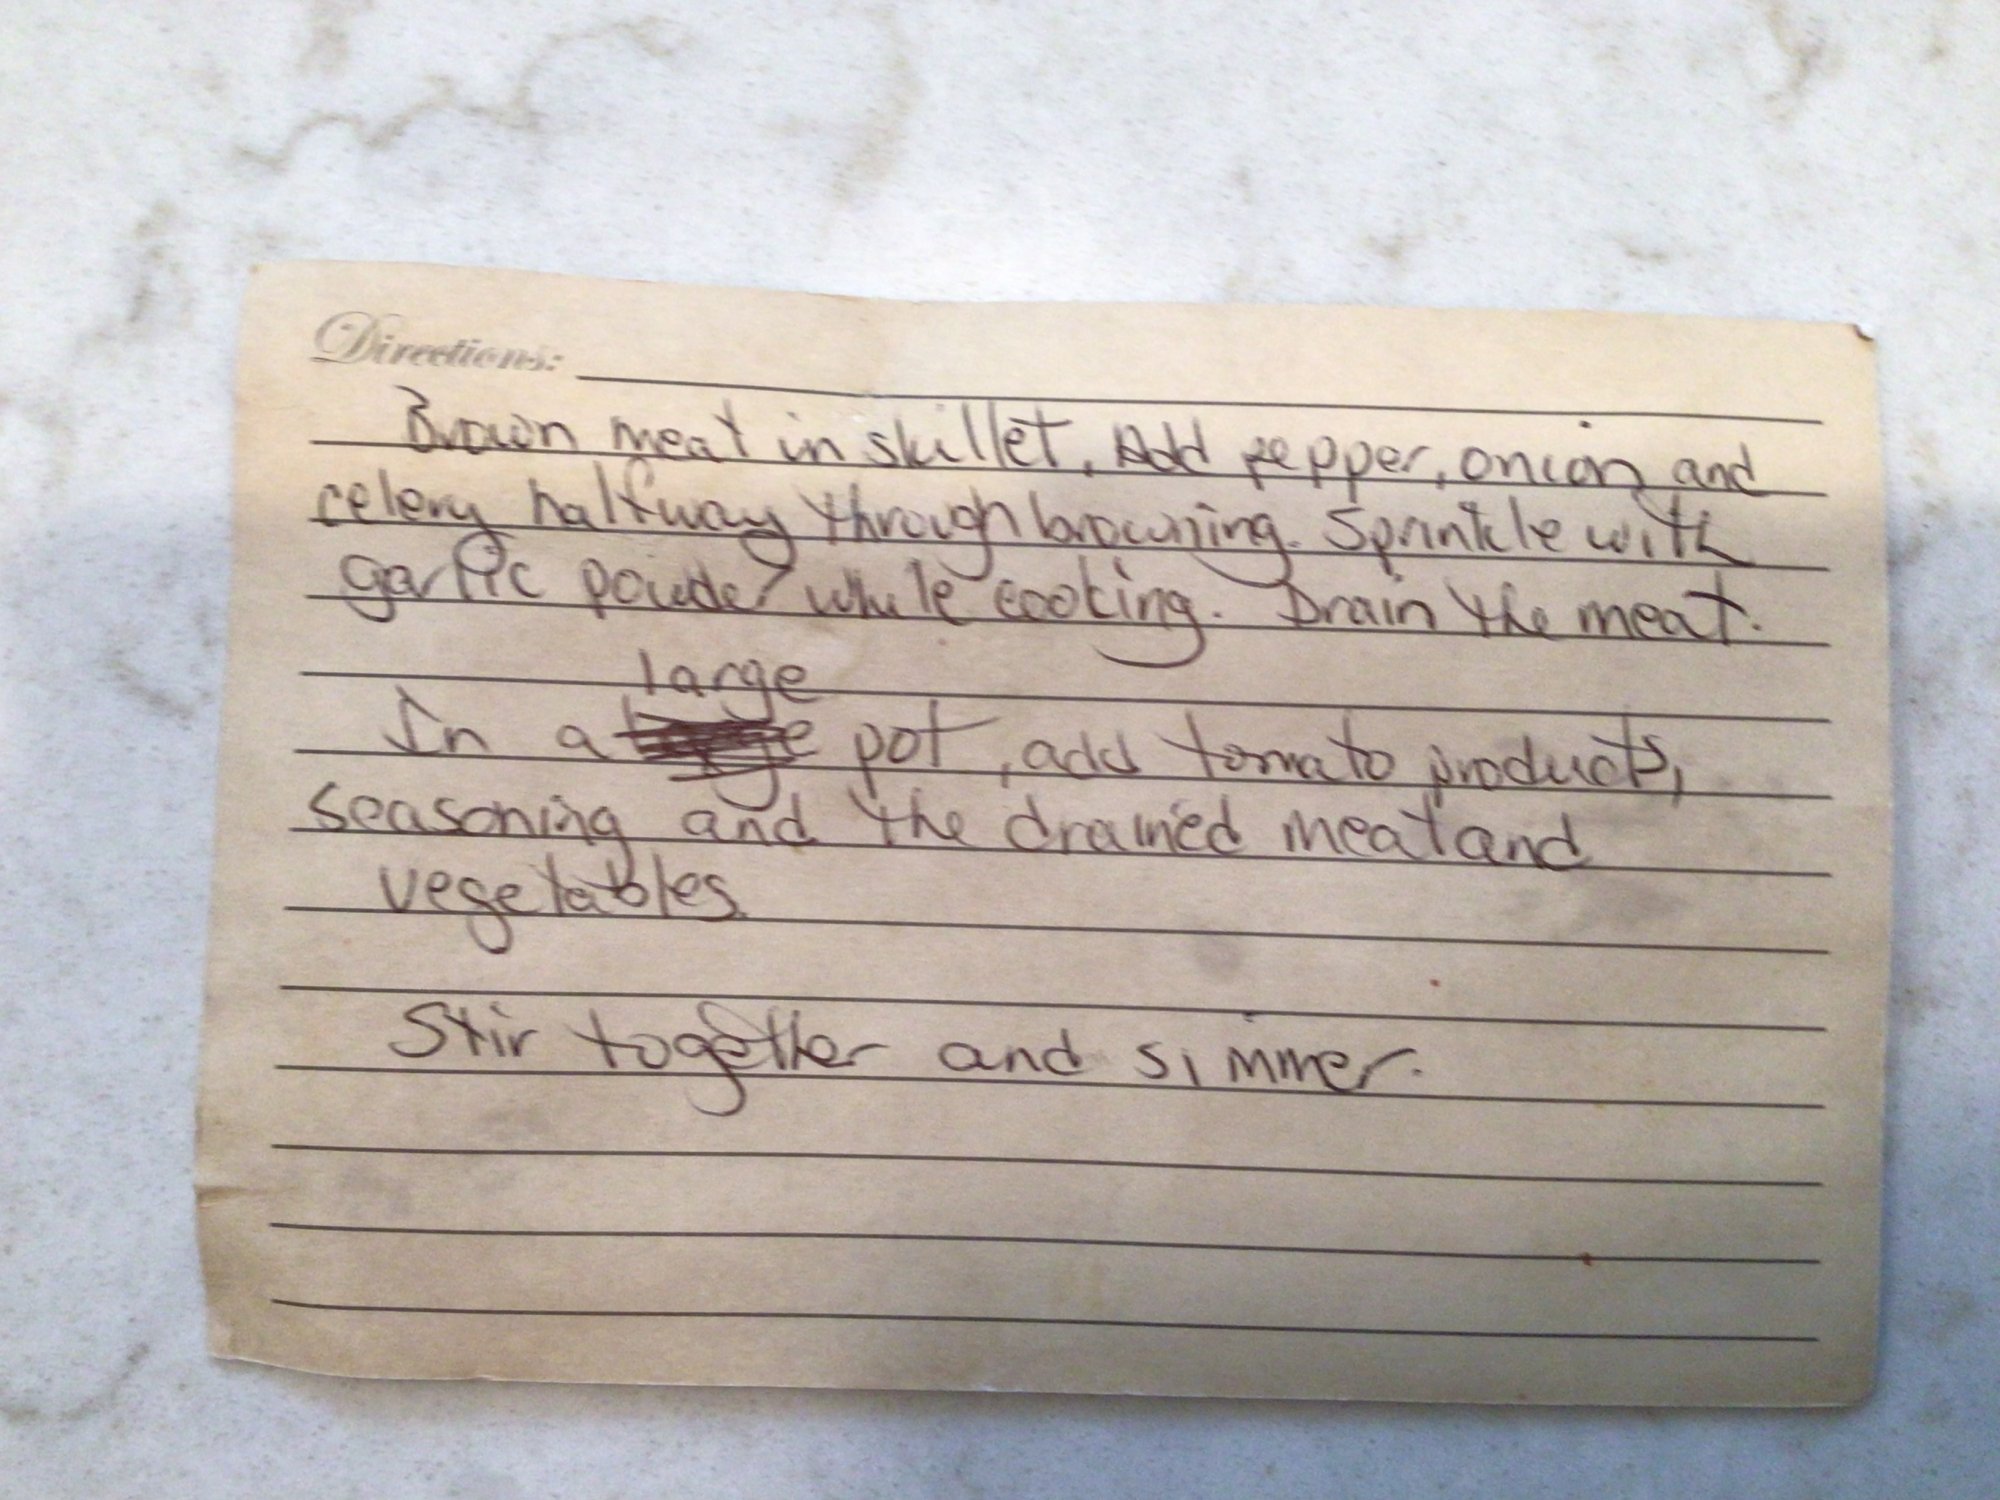 Directions:
Brown meat in skillet. Add pepper, onion and
celery halfway through browning. Sprinkle with
garlic powder while cooking. Drain the meat.
large
In a pot, add tomato products,
seasoning and the drained meat and
vegetables.
Stir together and simmer.